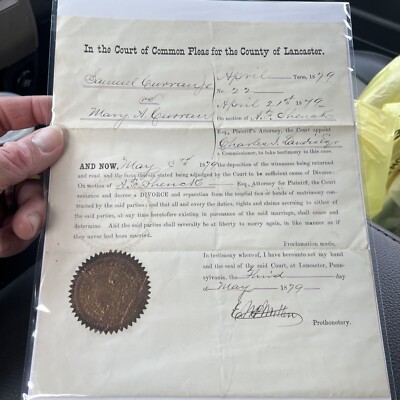 In the Court of Common Pleas for the County of Lancaster.
Samuel Curran Jr. April Term, 1879
vs No. 22
Mary A. Curran April 21st 1879
On motion of A. F. Shenck
Esq., Plaintiff's Attorney, the Court appoint
Charles I. Landis Esq
a Commissioner, to take testimony in this case.
AND NOW, May 3rd 1879 the deposition of the witnesses being returned
and read, and the facts therein stated being adjudged by the Court to be sufficient cause of Divorce.
On motion of A. F. Shenck Esq., Attorney for Plaintiff, the Court
sentence and decree a DIVORCE and separation from the nuptial ties or bonds of matrimony con-
tracted by the said parties; and that all and every the duties, rights and claims accruing to either of
the said parties, at any time heretofore existing in pursuance of the said marriage, shall cease and
determine. And the said parties shall severally be at liberty to marry again, in like manner as if
they never had been married.
Proclamation made.
In testimony whereof, I have hereunto set my hand
and the seal of the said Court, at Lancaster, Penn-
sylvania, the Third day
of May 1879
Prothonotary.